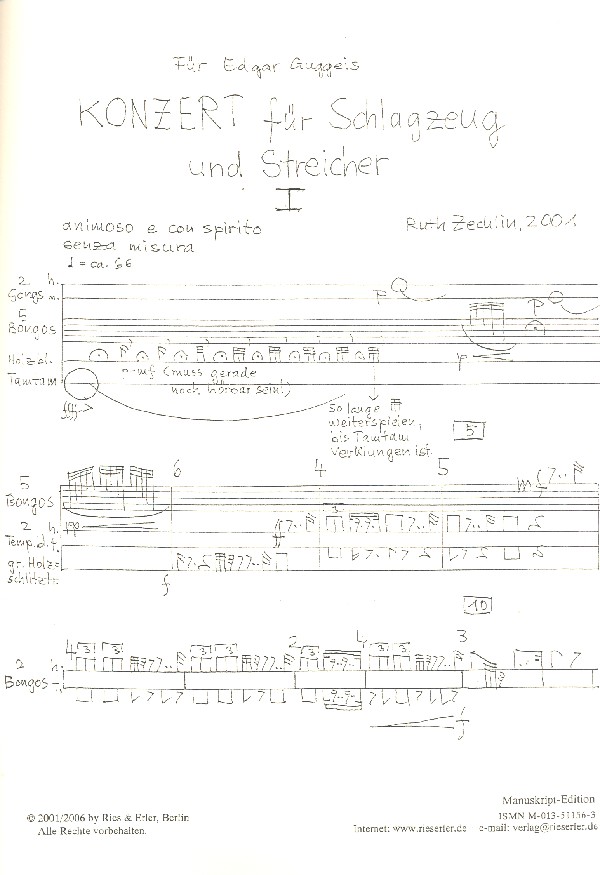 Für Edgar Guggeis
KONZERT für Schlagzeug
und Streicher
I
animoso e con spirito
senza misura
Ruth Zechlin, 2001
♩ = ca. 66
2 h.
Gongs m.
5
Bongos
Holzbl.
Tamtam
fff
p-mf (muss gerade
noch hörbar sein!)
p
p
p
so lange
weiterspielen,
bis Tamtam
verklungen ist.
5
5
Bongos
6
4
5
mf
2 h.
Temp.bl. t.
pp
ff
3
gr. Holz-
schlitztr.
f
10
4
3
3
3
3
2
3
4
3
3
3
2 h.
Bongos t.
f
© 2001/2006 by Ries & Erler, Berlin
Alle Rechte vorbehalten.
Manuskript-Edition
ISMN M-013-51156-3
Internet: www.rieserler.de e-mail: verlag@rieserler.de